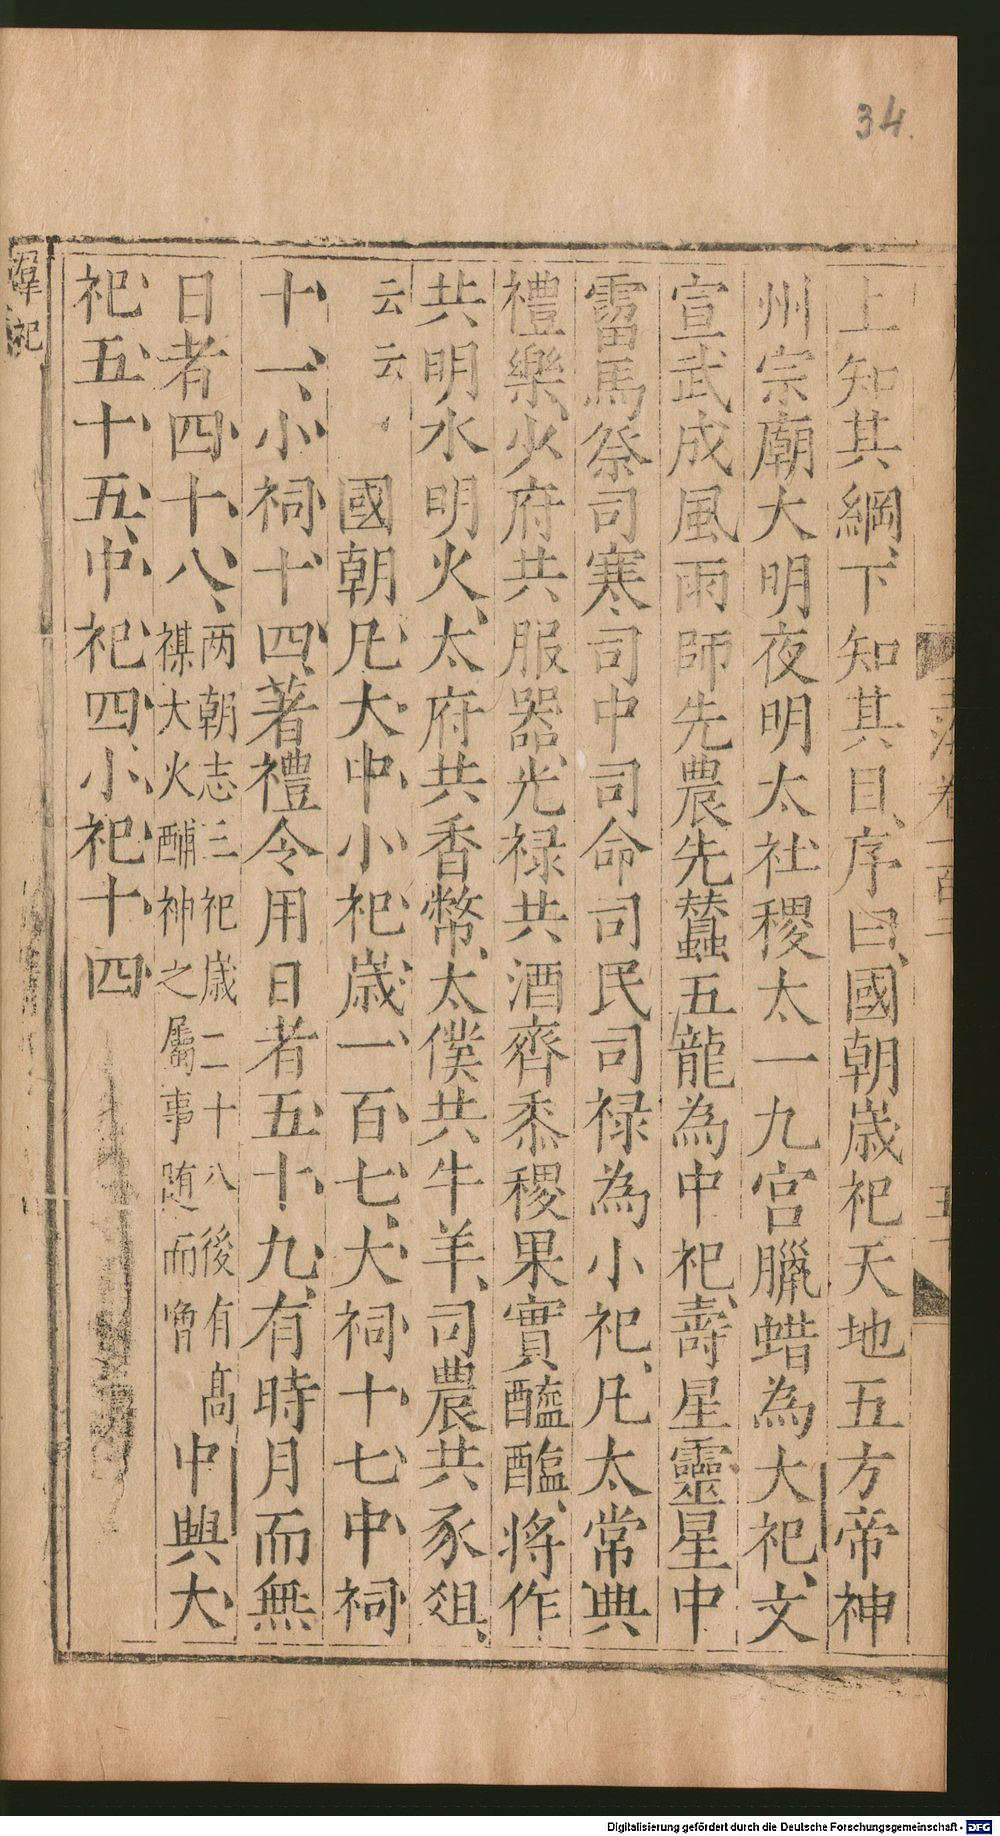 34.
上知其綱、下知其目、序曰、國朝歲祀天地五方帝神
州宗廟大明夜明太社稷太一九宮臘蜡為大祀、文
宣武成風雨師先農先蠶五龍為中祀、壽星靈星中
霤馬祭司寒司中司命司民司禄為小祀、凡太常典
禮樂、少府共服器、光禄共酒齊黍稷果實醯醢、將作
共明水明火、太府共香幣、太僕共牛羊、司農共豕俎、
云云 國朝凡大中小祀歲一百七、大祠十七中祠
十一、小祠十四、著禮令用日者五十九、有時月而無
日者四十八、
两朝志三祀歲二十八後有髙
禖大火酺神之屬事随而曾
中興大
祀五十五、中祀四小祀十四
羣祀
玉海卷一百二
Digitalisierung gefördert durch die Deutsche Forschungsgemeinschaft - DFG